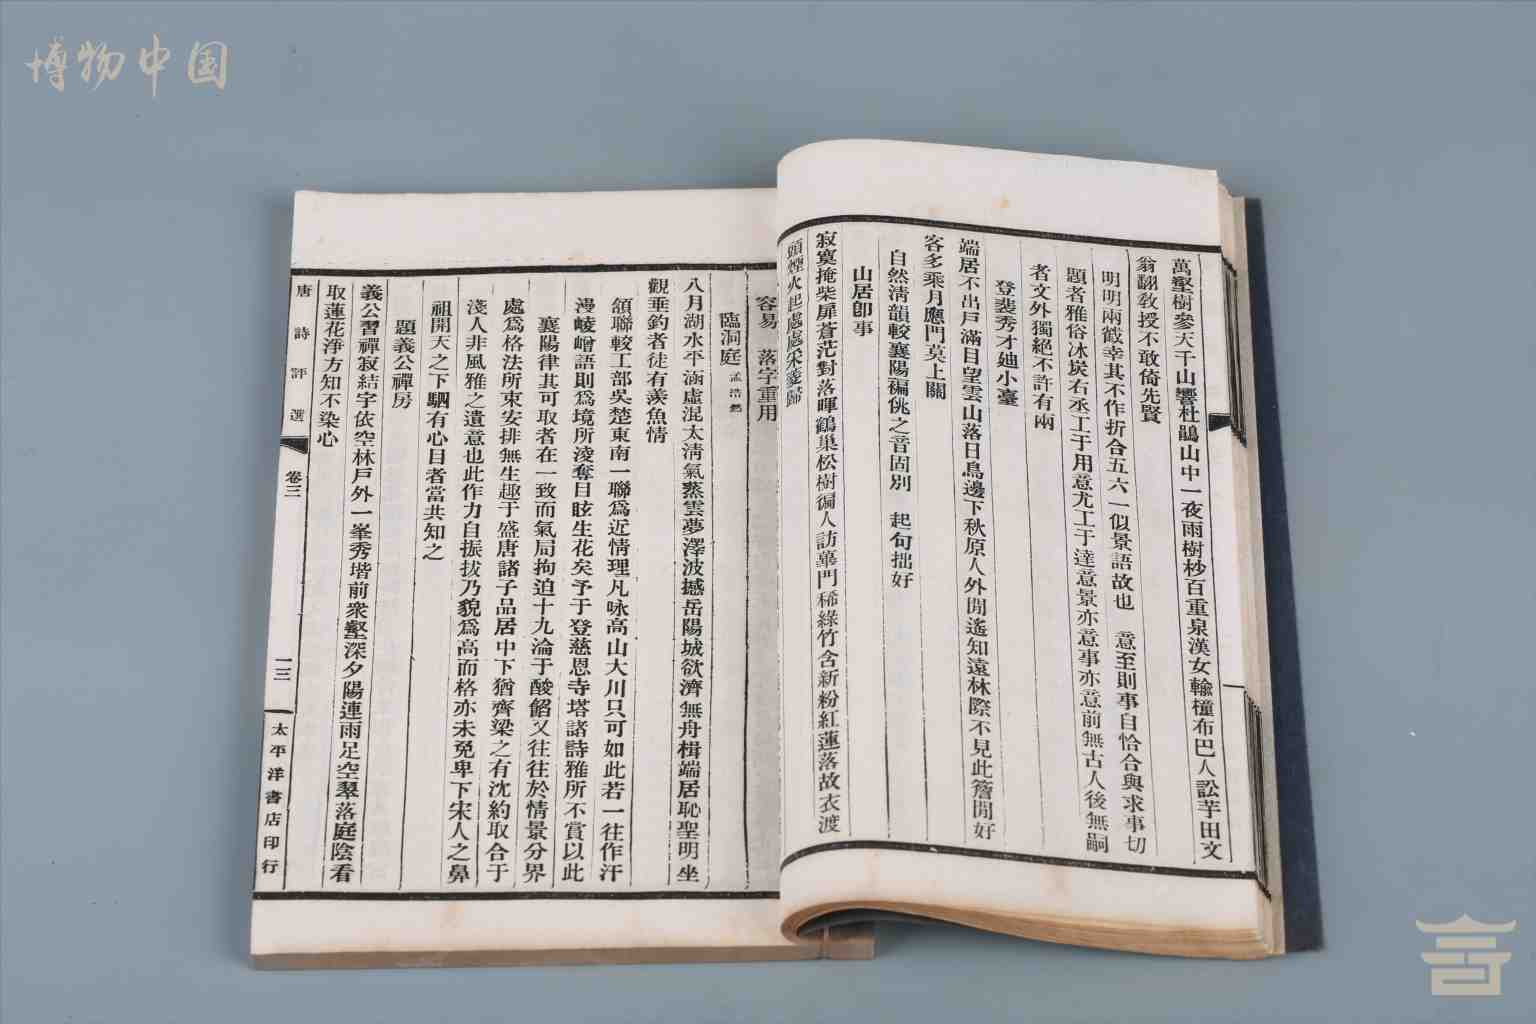 博物中国
萬壑樹參天千山響杜鵑山中一夜雨樹杪百重泉漢女輸橦布巴人訟芋田文
翁翻敎授不敢倚先賢
明明兩截幸其不作折合五六一似景語故也 意至則事自恰合與求事切
題者雅俗冰炭右丞工于用意尤工于達意景亦意事亦意前無古人後無嗣
者文外獨絕不許有兩
登裴秀才廸小臺
端居不出戶滿目望雲山落日鳥邊下秋原人外閒遙知遠林際不見此簷閒好
客多乘月應門莫上關
自然淸韻較襄陽褊佻之音固別 起句拙好
山居卽事
寂寞掩柴扉蒼茫對落暉鶴巢松樹徧人訪蓽門稀綠竹含新粉紅蓮落故衣渡
頭煙火起處處采菱歸
容易 落字重用
臨洞庭 孟浩然
八月湖水平涵虛混太淸氣蒸雲夢澤波撼岳陽城欲濟無舟楫端居恥聖明坐
觀垂釣者徒有羨魚情
頷聯較工部吳楚東南一聯爲近情理凡咏高山大川只可如此若一往作汗
漫崚嶒語則爲境所淩奪目眩生花矣予于登慈恩寺塔諸詩雅所不賞以此
襄陽律其可取者在一致而氣局拘迫十九淪于酸餡又往往於情景分界
處爲格法所束安排無生趣于盛唐諸子品居中下猶齊梁之有沈約取合于
淺人非風雅之遺意也此作力自振拔乃貌爲高而格亦未免卑下宋人之鼻
祖開天之下駟有心目者當共知之
題義公禪房
義公習禪寂結宇依空林戶外一峯秀堦前衆壑深夕陽連雨足空翠落庭陰看
取蓮花淨方知不染心
唐詩評選 卷三 一三 太平洋書店印行